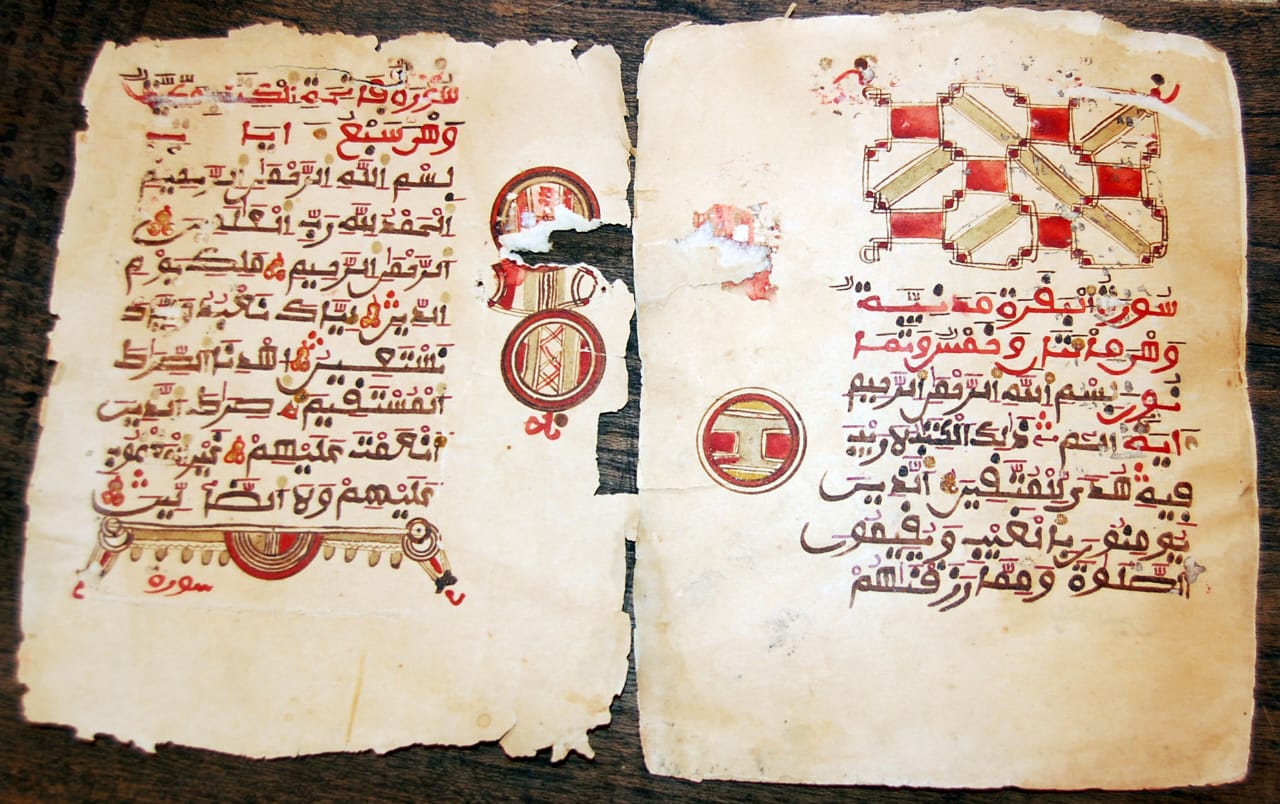 سورة فاتحة الكتب مكية
وهى سبع ايا ت
بسم الله الرحمن الرحيم
الحمد لله رب العلمين
الرحمن الرحيم ملك يوم
الدين اياك نعبد واياك
نستعين اهدنا الصراط
المستقيم صراط الذين
انعمت عليهم غير المغضوب
عليهم ولا الضالين
سورة
سورة البقرة مدنية
وهى مائتان وخمس وثما
نون بسم الله الرحمن الرحيم
اية الم ذلك الكتب لا ريب
فيه هدى للمتقين الذين
يومنون بالغيب ويقيمون
الصلوة ومما رزقنهم